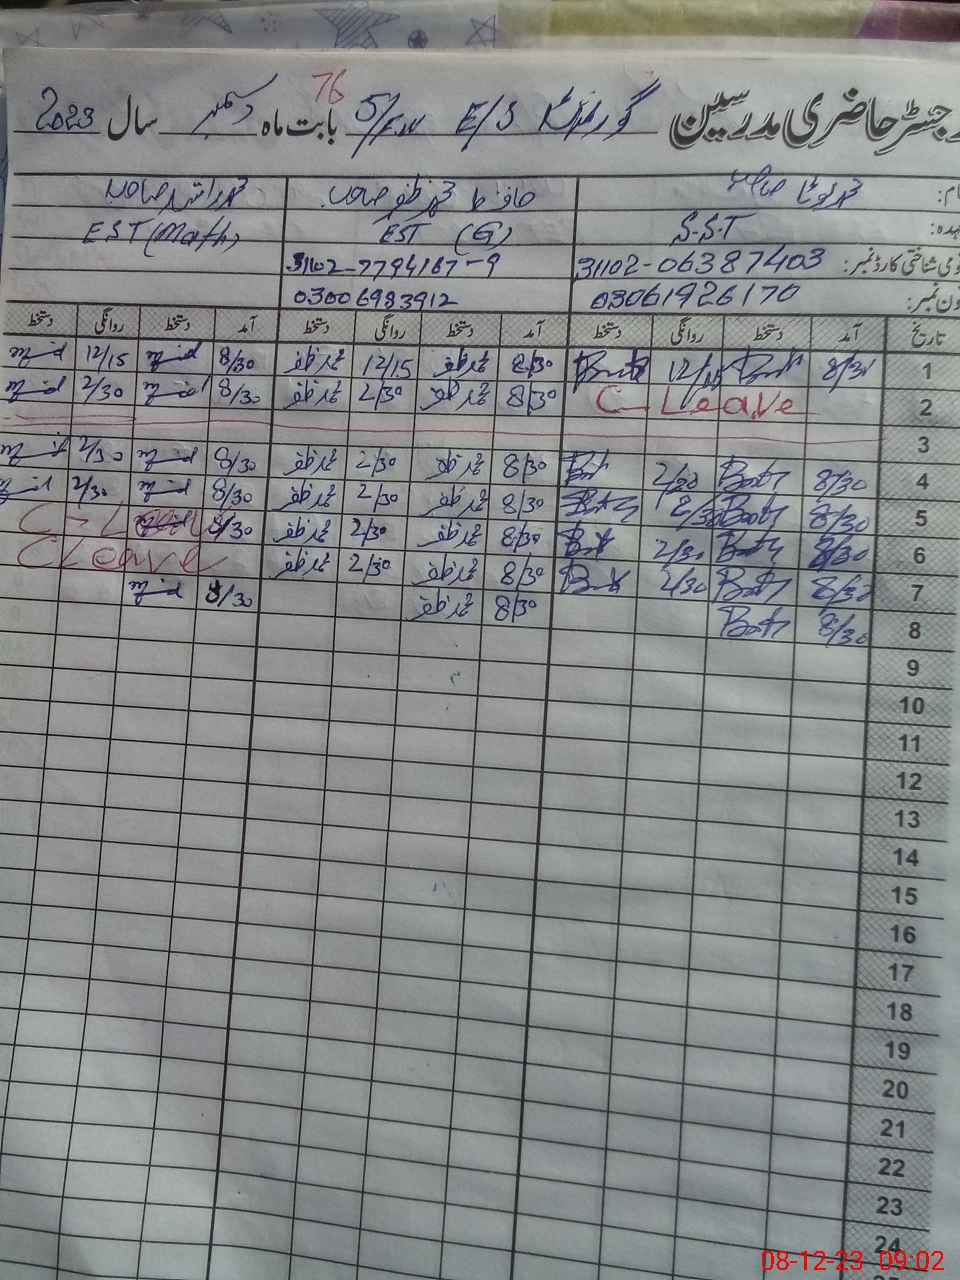 رجسٹر حاضری مدرسین گورنمنٹ E/S 5/F.W بابت ماہ دسمبر سال 2023
76
نام: حافظ محمد ظفر صاحب محمد راشد صاحب
عہدہ: S.S.T EST (G) EST (Math)
قومی شناختی کارڈ نمبر: 31102-06387403 31102-7794167-9
فون نمبر: 03061926170 03006983912
تاریخ آمد دستخط روانگی دستخط آمد دستخط روانگی دستخط آمد دستخط روانگی دستخط
1 8/30 12/15 8/30 محمد ظفر 12/15 محمد ظفر 8/30 12/15
2 C-Leave 8/30 محمد ظفر 2/30 محمد ظفر 8/30 2/30
3
4 8/30 2/30 8/30 محمد ظفر 2/30 محمد ظفر 8/30 2/30
5 8/30 2/30 8/30 محمد ظفر 2/30 محمد ظفر 8/30 2/30
6 8/30 2/30 8/30 محمد ظفر 2/30 محمد ظفر 8/30 C-Leave
7 8/30 2/30 8/30 محمد ظفر 2/30 محمد ظفر C Leave
8 8/30 8/30 محمد ظفر 8/30
9
10
11
12
13
14
15
16
17
18
19
20
21
22
23
24
08-12-23 09:02